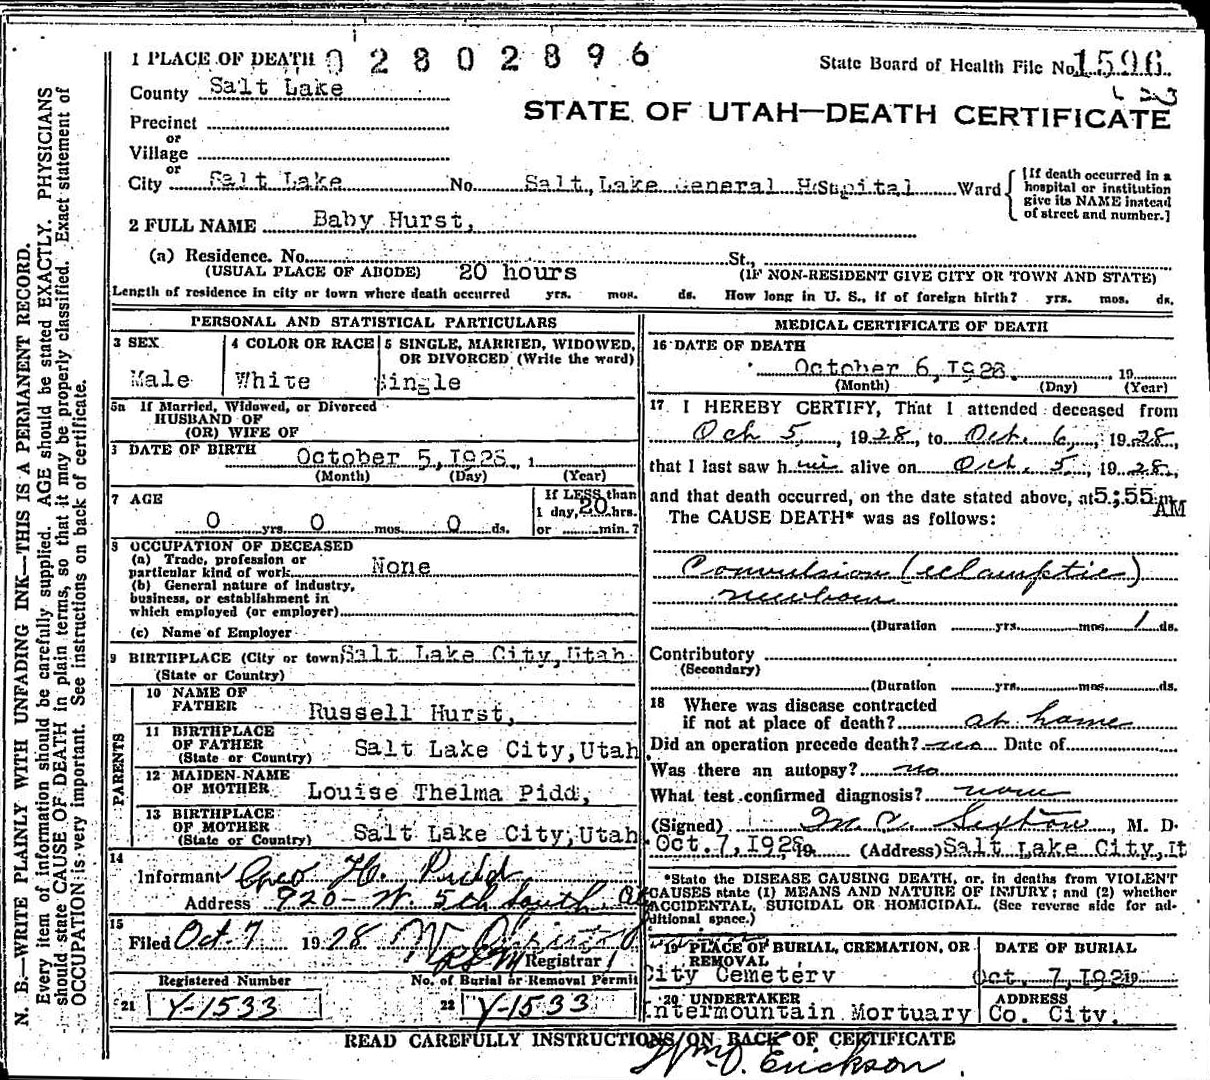 1 PLACE OF DEATH 02802896
State Board of Health File No. 1596
County Salt Lake
STATE OF UTAH—DEATH CERTIFICATE
Precinct
or
Village
or
City Salt Lake No. Salt Lake General Hospital Ward
[If death occurred in a
hospital or institution
give its NAME instead
of street and number.]
2 FULL NAME Baby Hurst,
(a) Residence. No. St.,
(USUAL PLACE OF ABODE) 20 hours (IF NON-RESIDENT GIVE CITY OR TOWN AND STATE)
Length of residence in city or town where death occurred yrs. mos. ds. How long in U. S., if of foreign birth? yrs. mos. ds.
PERSONAL AND STATISTICAL PARTICULARS
3 SEX
Male
4 COLOR OR RACE
White
5 SINGLE, MARRIED, WIDOWED,
OR DIVORCED (Write the word)
Single
5a If Married, Widowed, or Divorced
HUSBAND OF
(OR) WIFE OF
DATE OF BIRTH October 5, 1928. 1
(Month) (Day) (Year)
7 AGE
0 yrs. 0 mos. 0 ds.
If LESS than
1 day, 20 hrs.
or min.?
8 OCCUPATION OF DECEASED
(a) Trade, profession or
particular kind of work None
(b) General nature of industry,
business, or establishment in
which employed (or employer)
(c) Name of Employer
9 BIRTHPLACE (City or town) Salt Lake City, Utah
(State or Country)
PARENTS
10 NAME OF
FATHER
Russell Hurst,
11 BIRTHPLACE
OF FATHER
(State or Country)
Salt Lake City, Utah
12 MAIDEN-NAME
OF MOTHER
Louise Thelma Pidd,
13 BIRTHPLACE
OF MOTHER
(State or Country)
Salt Lake City, Utah
14
Informant Geo H. Pidd
Address 920- W. 5th South.
15
Filed Oct. 7 1928
Registrar
Registered Number
21 Y-1533
No. of Burial or Removal Permit
22 Y-1533
MEDICAL CERTIFICATE OF DEATH
16 DATE OF DEATH
October 6, 1928. 19
(Month) (Day) (Year)
17 I HEREBY CERTIFY, That I attended deceased from
Oct 5, 1928, to Oct. 6, 1928,
that I last saw him alive on Oct. 5, 1928,
and that death occurred, on the date stated above, at 5:55 AM
The CAUSE DEATH* was as follows:
Convulsion (eclamptic)
newborn
(Duration yrs. mos. 1 ds.
Contributory
(Secondary)
(Duration yrs. mos. ds.
18 Where was disease contracted
if not at place of death? at home
Did an operation precede death? no Date of
Was there an autopsy? no
What test confirmed diagnosis? none
(Signed) M. C. Sexton, M. D.
Oct. 7, 1928 19 (Address) Salt Lake City, Ut
*State the DISEASE CAUSING DEATH, or, in deaths from VIOLENT
CAUSES state (1) MEANS AND NATURE OF INJURY; and (2) whether
ACCIDENTAL, SUICIDAL OR HOMICIDAL. (See reverse side for ad-
ditional space.)
19 PLACE OF BURIAL, CREMATION, OR
REMOVAL
City Cemetery
DATE OF BURIAL
Oct. 7, 1928 19
20 UNDERTAKER
Intermountain Mortuary
ADDRESS
Co. City.
READ CAREFULLY INSTRUCTIONS ON BACK OF CERTIFICATE
Wm O. Erickson.
N. B.—WRITE PLAINLY WITH UNFADING INK—THIS IS A PERMANENT RECORD.
Every item of information should be carefully supplied. AGE should be stated EXACTLY. PHYSICIANS
should state CAUSE OF DEATH in plain terms, so that it may be properly classified. Exact statement of
OCCUPATION is very important. See instructions on back of certificate.